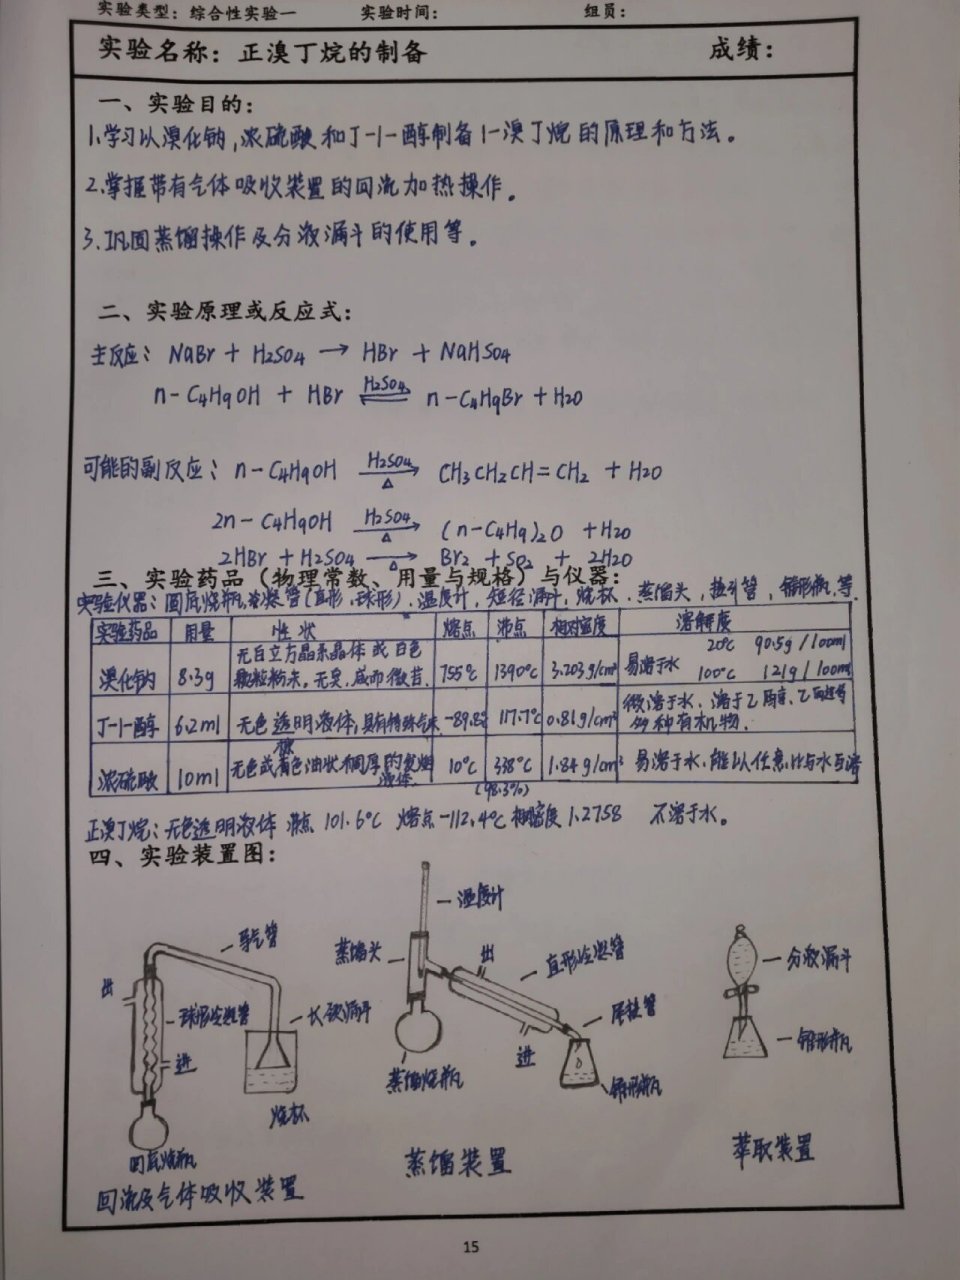 实验类型：综合性实验一 实验时间： 组员：
实验名称：正溴丁烷的制备 成绩：
一、实验目的：
1.学习以溴化钠,浓硫酸和丁-1-醇制备1-溴丁烷的原理和方法。
2.掌握带有气体吸收装置的回流加热操作。
3.巩固蒸馏操作及分液漏斗的使用等。
二、实验原理或反应式：
主反应： NaBr + H2SO4 → HBr + NaHSO4
n-C4H9OH + HBr ⇌ n-C4H9Br + H2O
H2SO4
可能的副反应： n-C4H9OH → CH3CH2CH=CH2 + H2O
H2SO4
△
2n-C4H9OH → (n-C4H9)2O + H2O
H2SO4
△
2HBr + H2SO4 → Br2 + SO2 + 2H2O
三、实验药品（物理常数、用量与规格）与仪器：
实验仪器：圆底烧瓶,冷凝管(直形,球形),温度计,短径漏斗,烧杯,蒸馏头,接引管,锥形瓶,等.
实验药品 用量 性状 熔点 沸点 相对密度 溶解度
溴化钠 8.3g 无色立方晶系晶体或白色
颗粒粉末。无臭,咸而微苦. 755℃ 1390℃ 3.203g/cm³ 易溶于水 20℃ 90.5g/100ml
100℃ 121g/100ml
丁-1-醇 6.2ml 无色透明液体,具有特殊气味 -89.8℃ 117.7℃ 0.81g/cm³ 微溶于水、溶于乙醇、乙醚等
多种有机物.
浓硫酸 10ml 无色或棕色油状稠厚的发烟
液体. 10℃ 338℃ 1.84g/cm³ 易溶于水,能以任意比与水互溶
(98.3%)
正溴丁烷：无色透明液体 沸点 101.6℃ 熔点-112.4℃ 相对密度 1.2758 不溶于水。
四、实验装置图：
温度计
导气管
蒸馏头
出
直形冷凝管
分液漏斗
出
球形冷凝管
长颈漏斗
尾接管
进
进
锥形瓶
蒸馏烧瓶
锥形瓶
烧杯
圆底烧瓶
蒸馏装置
萃取装置
回流及气体吸收装置
15